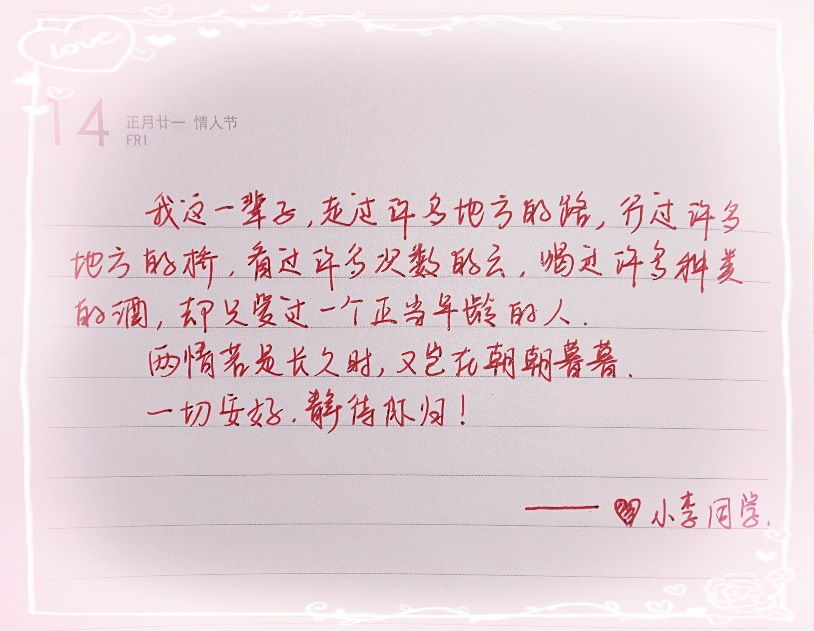 love
14
正月廿一 情人节
FRI
我这一辈子,走过许多地方的路,行过许多
地方的桥,看过许多次数的云,喝过许多种类
的酒,却只爱过一个正当年龄的人.
两情若是长久时,又岂在朝朝暮暮.
一切安好.静待你归!
——小李同学.